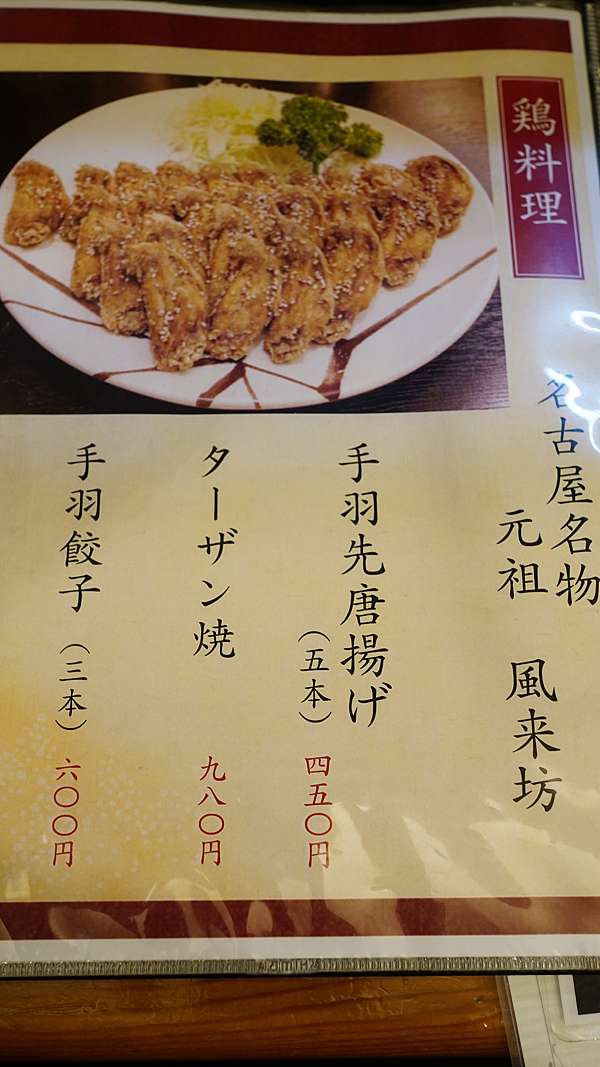 鶏料理
名古屋名物
元祖　風来坊
手羽先唐揚げ
（五本）　四五〇円
ターザン焼　九八〇円
手羽餃子　（三本）　六〇〇円